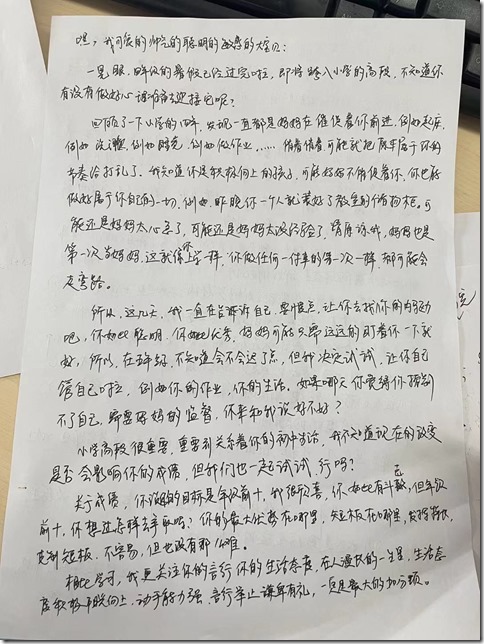 嘿，我可爱的帅气的聪明的敏感的大宝贝：
一晃眼，四年级的暑假已经过完啦，即将踏入小学的高段，不知道你
有没有做好心理准备迎接它呢？
回顾了一下小学的四年，发现一直都是妈妈在催促着你前进，例如起床，
例如洗漱，例如刷牙，例如做作业……催着催着可能就把原本属于你的
节奏给打乱了。我知道你是积极向上的孩子，可能妈妈不催促着你，你也能
做好属于你自己的一切，例如昨晚你一个人就装好了教室的储物柜。可
能还是妈妈太心急了，可能还是妈妈太没经验了，请原谅我，妈妈也是
第一次当妈妈，这就像你上学一样，你做任何一件事的第一次一样，都可能会
走弯路。
所以，这几天，我一直在告诉自己，要慢点，让你去找你的内驱动
吧，你如此聪明，你如此优秀，妈妈可能只需远远的盯着你一下就
好，所以，在五年级，不知道会不会迟了点，但我决定试试，让你自己
管自己啦，例如你的作业，你的生活。如果哪天你觉得你
不了自己，需要妈妈的监督，你来和我说好不好？
小学高段很重要，重要到关系着你的初中生活，我不知道现在的改变
是否会影响你的成绩，但我们也一起试试，行吗？
关于成绩，你说的目标是年级前十，我很欣喜，你如此有斗志，但年级
前十，你想过怎样去争取吗？你的最大优势在哪里，短板在哪里，发挥特长，
克制短板，不容易，但也没有那么难。
相比学习，我更关注你的言行你的生活态度，在人漫长的一生里，生活态
度积极乐观向上，动手能力强，言行举止谦卑有礼，一定是最大的加分项。